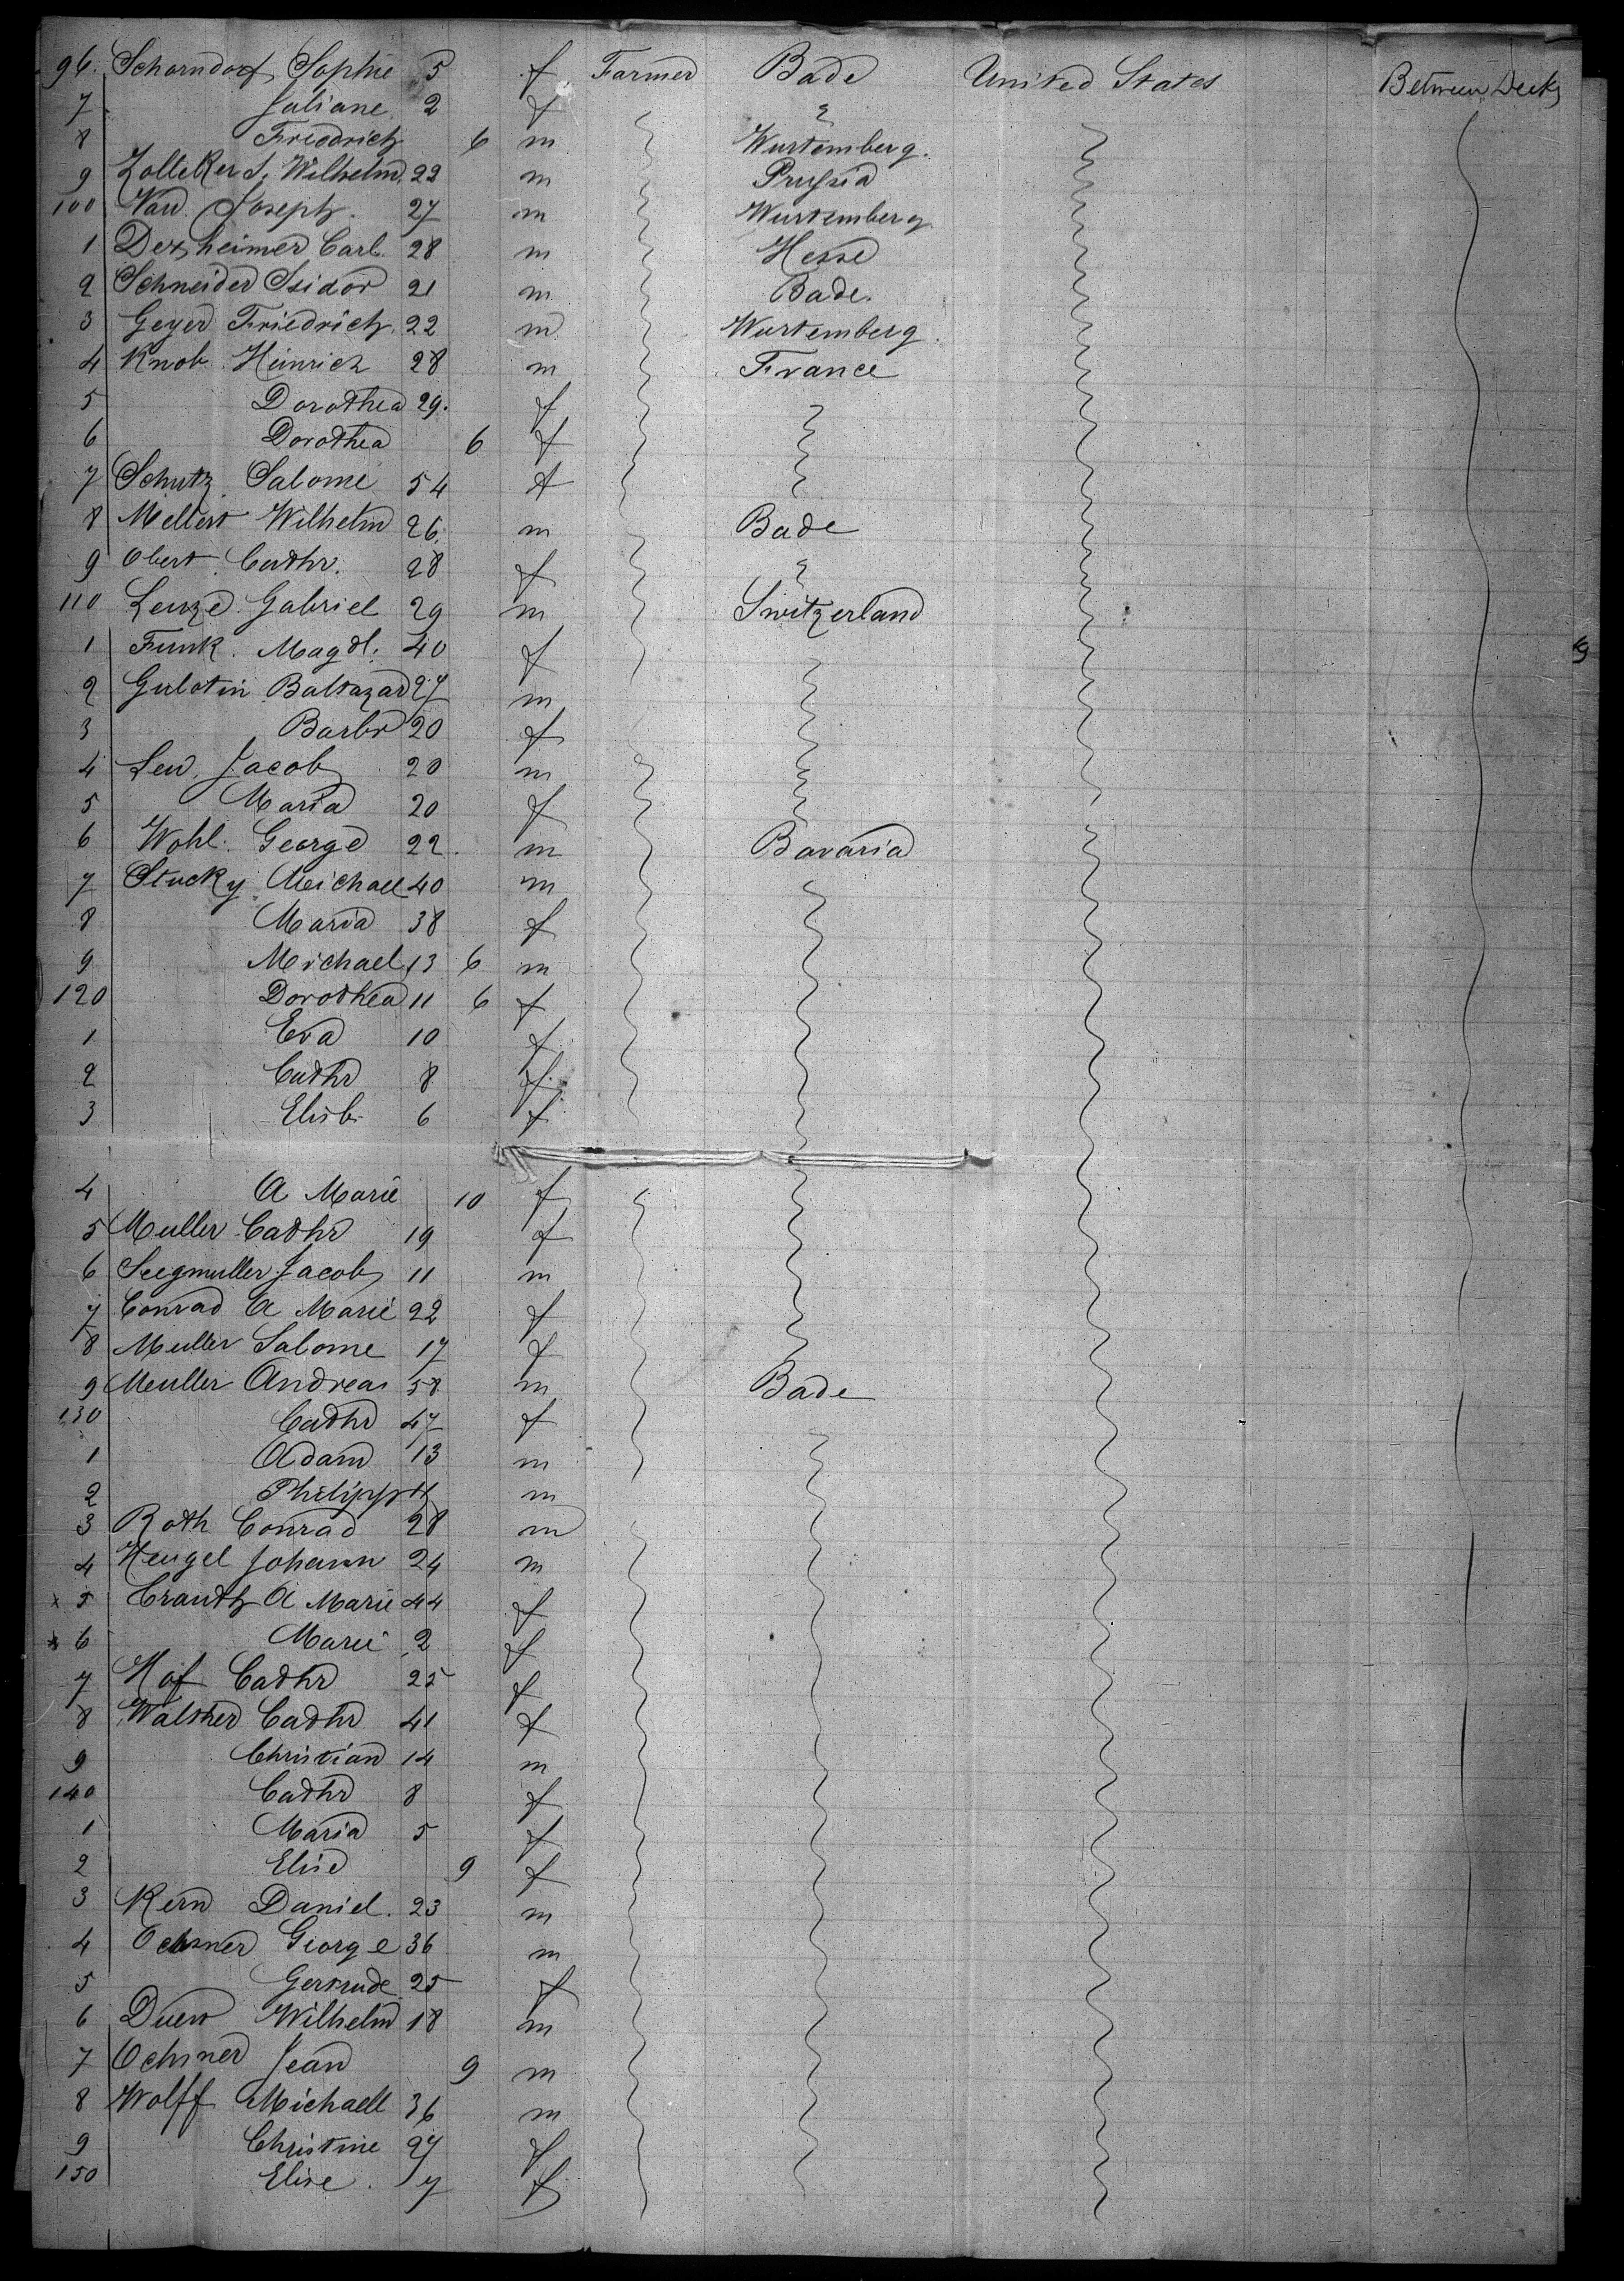 96. Schorndorf, Sophie 5 f Farmer Bade United States Between Decks
7 Juliane 2 f
8 Friedrich 6 m Wurtemberg.
9 Wilhelm. 22 m Prussia
100 Joseph. 27 m Wurtemberg
1 Dexheimer Carl. 28 m Hesse
2 Schneider Isidor 21 m Bade.
3 Geyer Friedrich. 22 m Wurtemberg.
4 Knob Heinrich 28 m France
5 Dorothea 29. f
6 Dorothea 6 f
7 Schutz Salome 54 f
8 Mellert Wilhelm 26. m Bade
9 Obert Cathr. 28 f
110 Gabriel 29 m Switzerland
1 Funk. Magdl. 40 f
2 Gulotin Baltazar 27 m
3 Barbr 20 f
4 Leu, Jacob 20 m
5 Maria 20 f
6 Wohl. George 22. m Bavaria
7 Stucky Michael 40 m
8 Maria 38 f
9 Michael 13 6 m
120 Dorothea 11 6 f
1 Eva 10 f
2 Cathr 8 f
3 Elisb. 6 f
4 A Marie 10 f
5 Muller Cathr 19 f
6 Seegmuller Jacob 11 m
7 Conrad A Marie 22 f
8 Muller Salome 17 f
9 Muller Andreas 58 m Bade
130 Cathr 47 f
1 Adam 13 m
2 Philipp 11 m
3 Roth Conrad 28 m
4 Hengel Johann 24 m
x 5 Crantz A Marie 44 f
x 6 Marie 2 f
7 Hof Cathr 25 f
8 Walther Cathr 41 f
9 Christian 14 m
140 Cathr 8 f
1 Maria 5 f
2 Elise 9 f
3 Kern Daniel. 23 m
4 Ochsner George 36 m
5 Gertrude 25 f
6 Duerr Wilhelm 18 m
7 Ochsner Jean 9 m
8 Wolff Michaell 36 m
9 Christine 27 f
150 Elise. 7 f